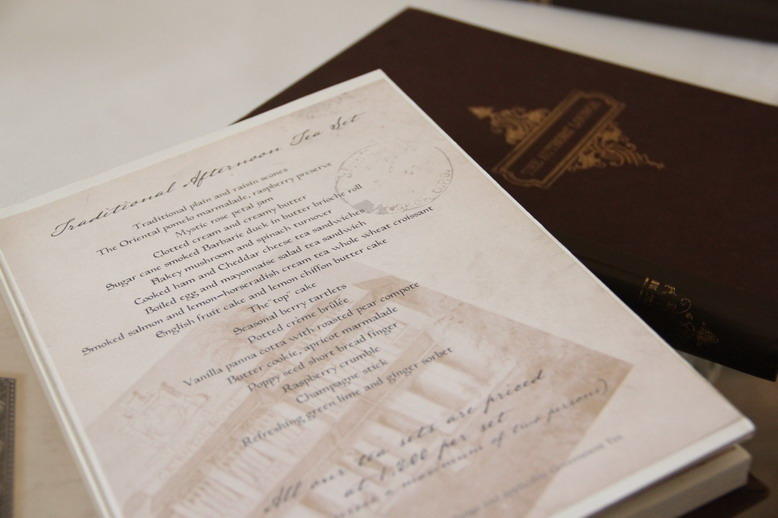 Traditional Afternoon Tea Set
Traditional plain and raisin scones
The Oriental pomelo marmalade, raspberry preserve
Mystic rose petal jam
Clotted cream and creamy butter
Sugar cane smoked Barbarie duck in butter brioche roll
Flakey mushroom and spinach turnover
Cooked ham and Cheddar cheese tea sandwiches
Boiled egg and mayonnaise salad tea sandwich
Smoked salmon and lemon-horseradish cream tea whole wheat croissant
English fruit cake and lemon chiffon butter cake
The "top" cake
Seasonal berry tartlets
Potted crème brûlée
Vanilla panna cotta with roasted pear compote
Butter cookie, apricot marmalade
Poppy seed short bread finger
Raspberry crumble
Champagne stick
Refreshing green lime and ginger sorbet
All our tea sets are priced
at 1,200 per set
a maximum of two persons)